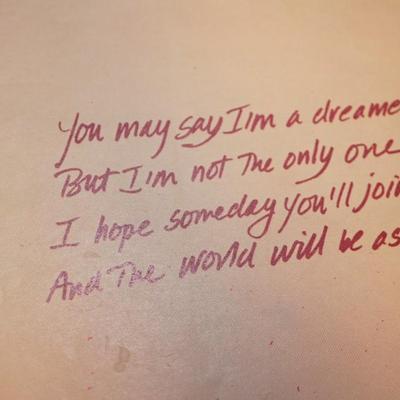 You may say I'm a dreame
But I'm not The only one
I hope someday you'll joi
And The world will be as